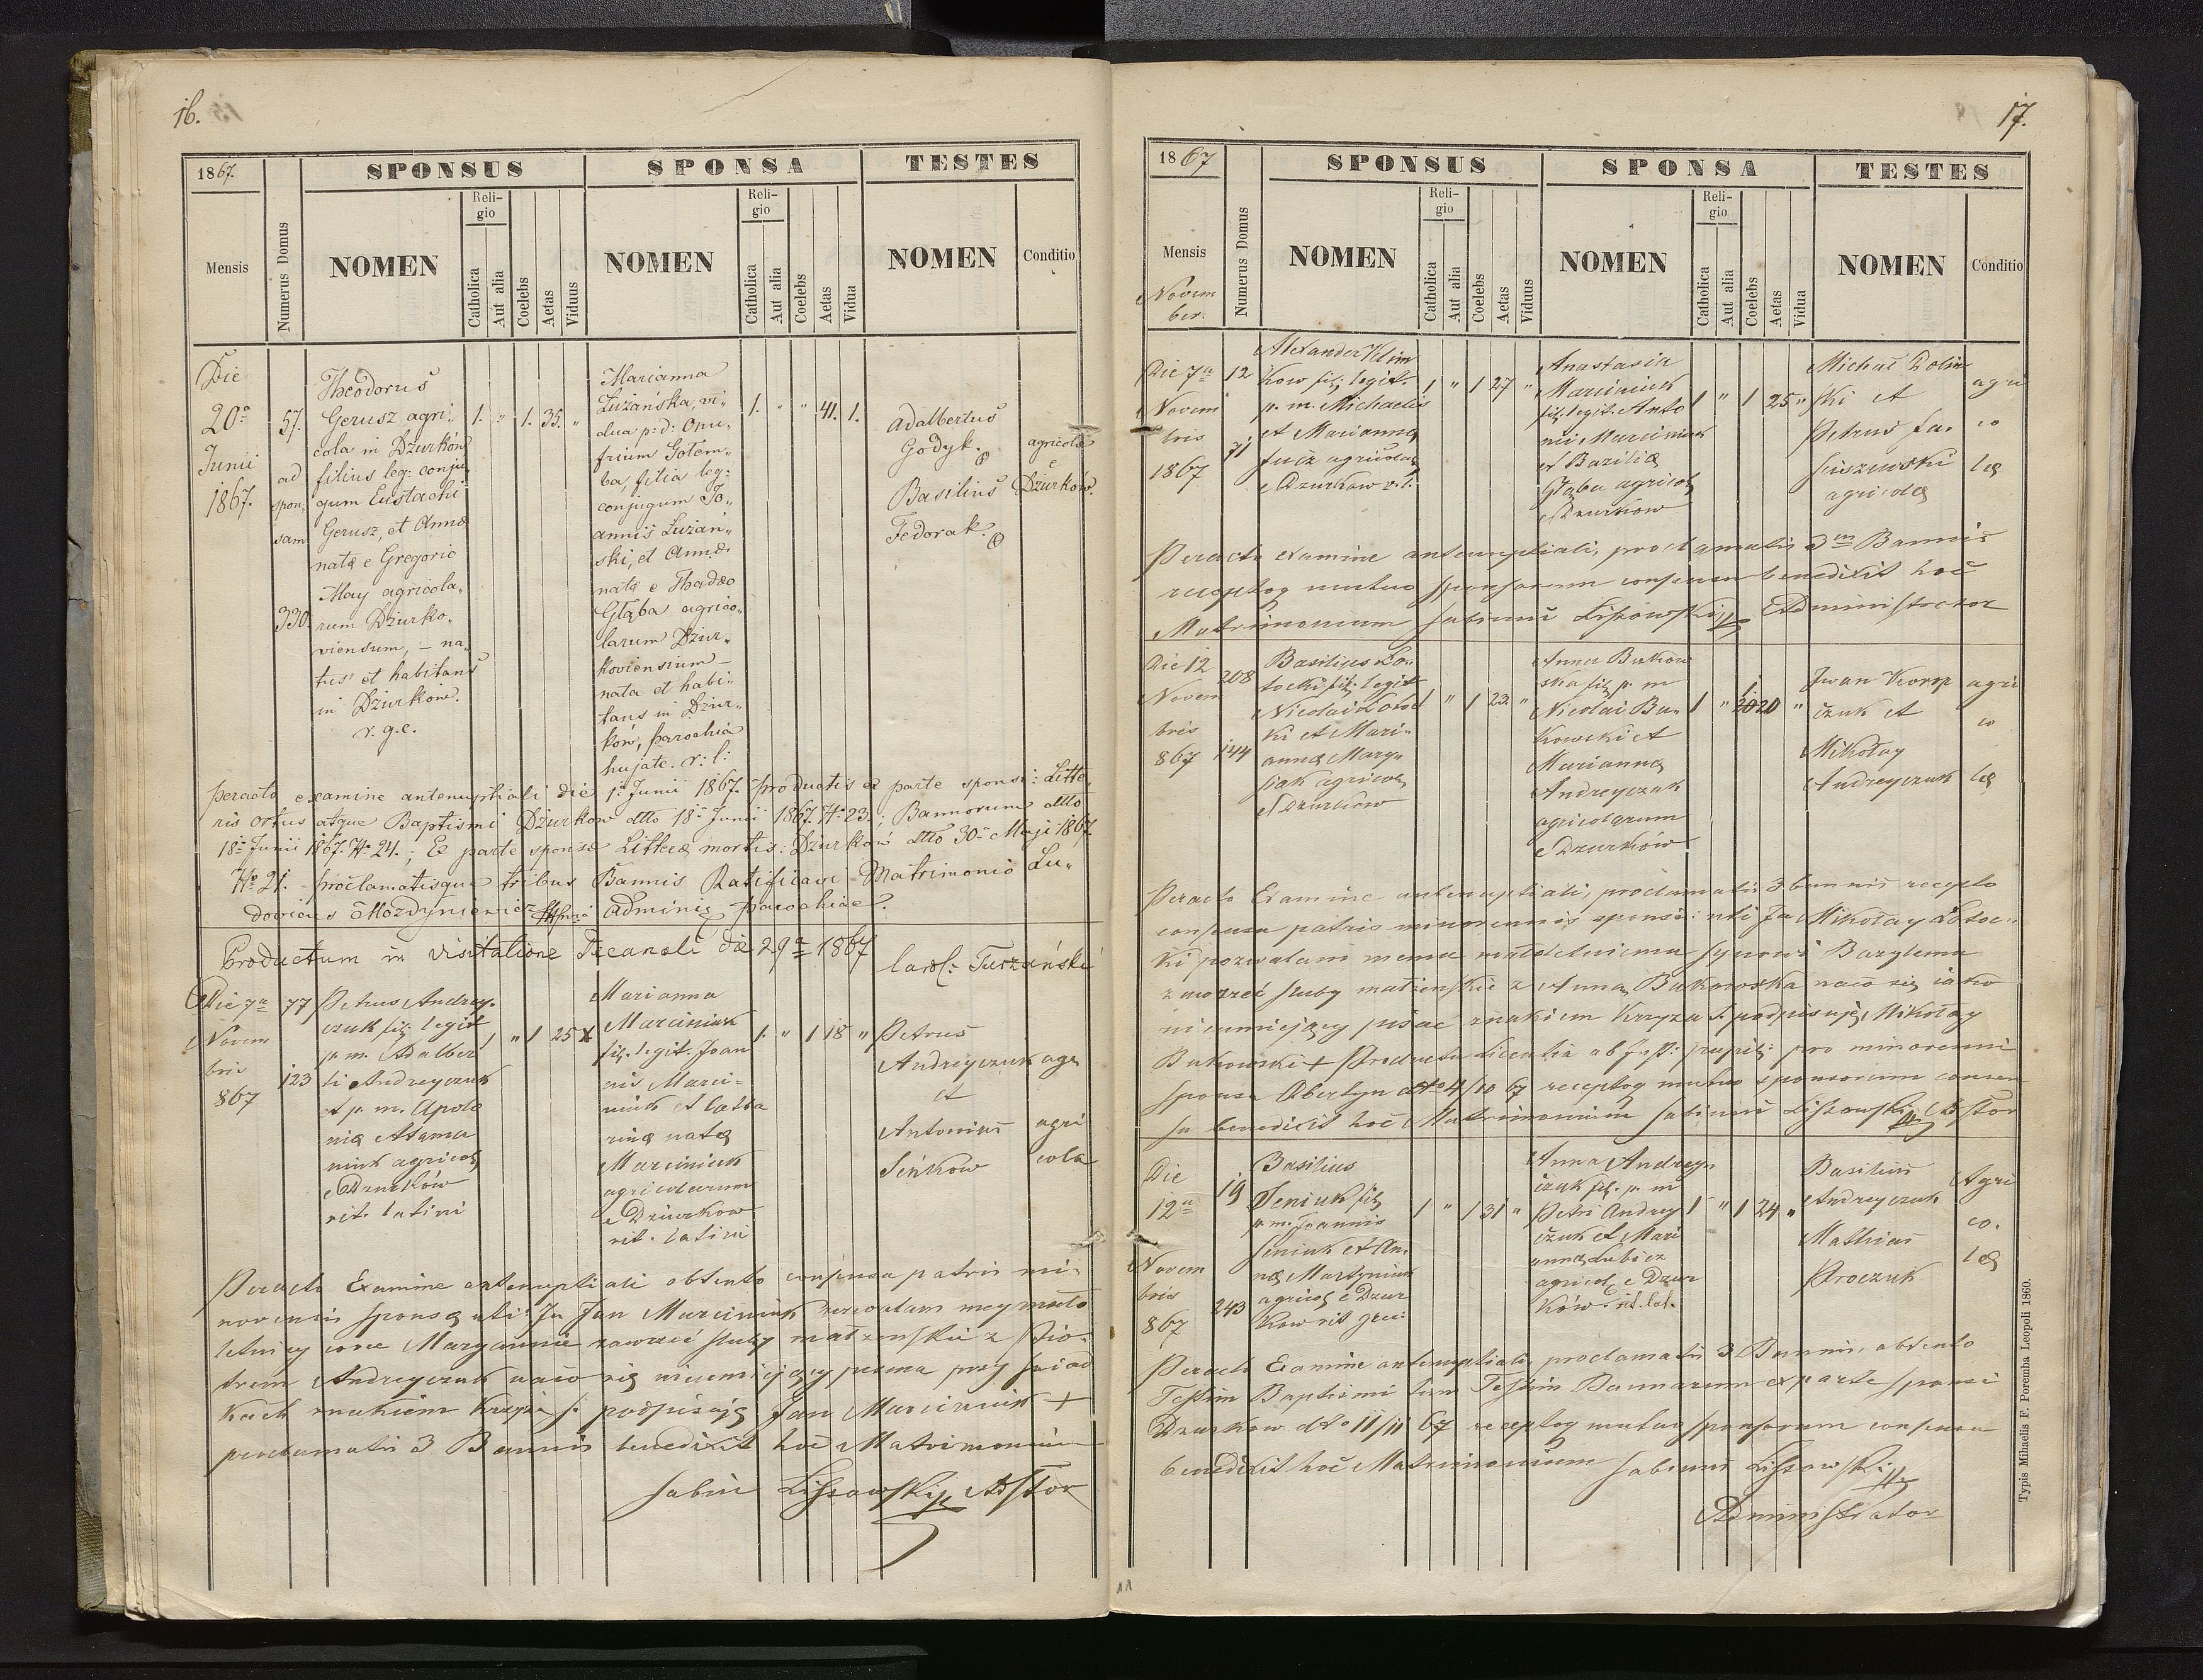 16.
1867.
SPONSUS
SPONSA
TESTES
Mensis
Numerus Domus
NOMEN
Reli-
gio
Catholica
Aut alia
Coelebs
Aetas
Viduus
NOMEN
Reli-
gio
Catholica
Aut alia
Coelebs
Aetas
Vidua
NOMEN
Conditio
Die
20a
Junii
1867.
57.
ad
spon„
sam
330.
Theodorus
Gerusz agri„
cola in Dżurków
filius leg: conju
gum Eustachi
Gerusz, et Annæ
natæ e Gregorio
May agricola„
rum Dżurko„
viensum, – na„
tus et habitans
in Dżurków.
r. g. c.
1. „ 1. 35. „
Marianna
Luzańska, vi„
dua p: d: Onu„
frium Gołem„
ba, filia leg:
conjugum Jo„
annis Luzań„
ski, et Annæ
natæ e Thadæo
Głąba agrico„
larum Dżur„
koviensium –
nata et habi„
tans in Dżur„
ków, parochia
hujate. r: l:
1. „ „ 41. 1.
Adalbertus
Godyk.
Basilius
Fedorak.
agricolæ
e
Dżurków.
Peracto examine antenuptiali die 1a Junii 1867. productis ex parte sponsi: Litte„
ris ortus atque Baptismi Dżurków dtto 18a Junii 1867. No 23.; Bannorum dtto
18a Junii 1867. No 24.; Ex parte sponsæ Litteræ mortis: Dżurków dtto 30a Maji 1867.
No 21. – proclamatisque tribus Bannis Ratificavi Matrimonio Lu„
dovicus Mozdyniewicz Adminis. parochiae.
Productum in visitatione Decanali die 29a 1867
Carol: Turzański
Die 7a
Novem
bris
867
77
123
Petrus Andrey„
czuk fil: legit
p. m. Adalber
ti Andreyczuk
et p. m. Apolo
niæ Adama
niuk agricol
e Dzurków
rit. latini
1 „ 1 25
Marianna
Marciniuk
fil. legit. Joan
nis Marci-
niuk et Catha
rinæ natæ
Marciniuk
agricolarum
e Dziurkow
rit. latini
1. „ 1 18 „
Petrus
Andreyczuk
et
Antonius
Seńkow
agri
cola
Peracto Examine antenuptiali obtento consensu patris mi-
norennis sponsæ uti: Ja Jan Marciniuk zezwalam mey mało
letniey corce Maryannie zawrzeć śluby małżenskie z Pio-
trem Andreyczuk na co się nieumiejący pisma przy świad
kach znakiem Krzyża S. podpisuję Jan Marciniuk +
proclamatis 3 Bannis benedixit hoc Matrimonium
Sabin Lissowski Adstor
17.
1867
SPONSUS
SPONSA
TESTES
Mensis
Novem
ber.
Numerus Domus
NOMEN
Reli-
gio
Catholica
Aut alia
Coelebs
Aetas
Viduus
NOMEN
Reli-
gio
Catholica
Aut alia
Coelebs
Aetas
Vidua
NOMEN
Conditio
Die 7a
Novem
bris
1867
12
71
Alexander Klim
kow fil: legit.
p. m. Michaelis
et Marianna
agricolæ
e Dzurkow r. l.
1 „ 1 27 „
Anastasia
Marciniuk
fil. legit. Anto
nii Marciniuk
et Basiliæ
Głąba agricol
e Dzurkow
1 „ 1 25 „
Michał Dolin
ski et
Petrus
agricolæ
agri
co
læ
Peracto examine antenuptiali, proclamatis 3m Bannis
receptoq mutuo sponsorum consensu benedixit hoc
Matrimonium Sabinus Lissowski Administrator
Die 12
Novem
bris
867
208
144
Basilius Ło„
tocki fil: legit
Nicolai Łotoc
ki et Mari-
annæ Mary„
siak agricol
e Dzurków
1 „ 1 23. „
Anna Bukow
ska fil. p. m
Nicolai Bu„
kowski et
Marianna
Andreyczuk
agricolarum
e Dzurków
1 „ 1 20 „
Iwan
czuk et
Mikołay
Andreyczuk
agri
co
læ
Peracto Examine antenuptiali, proclamatis 3 bannis recepto
consensu patris minorennis sponsi: uti Ja Mikołay Łotoc„
ki pozwalam memu małoletniemu synowi Bazylemu
zawrzeć śluby małżenskie z Anną Bukowska na co się iako
nieumiejący pisać znakiem Krzyza S. podpisuję Mikołay
Bukowski + Producta Licentia ab Jud: pupil: pro minorenni
sponsa Obertyn dtto 4/10 67 receptoq mutuo sponsorum consen
su benedixit hoc Matrimonium Sabinus Lissowski Adstor
Die
12a
Novem
bris
867
19
243
Basilius
Seniuk fil
p. m. Joannis
Seniuk et An„
næ Martyniuk
agricol e Dzur
kow rit grec:
1 „ 1 31 „
Anna Andrey„
czuk fil. p. m
Petri Andrey
czuk et Mari
annæ Lubicz
agricol e Dzur
ków. rit. lat.
1 „ 1 24 „
Basilius
Andreyczuk
Mathias
Proczuk
Agri
co.
læ
Peracto Examine antenuptiali, proclamatis 3 Bannis, obtento
Testim Baptismi tum Testim Bannorum ex parte sponsi
Dzurkow dto 11/11 67 receptoq mutuo sponsorum consensu
benedixit hoc Matrimonium Sabinus Lissowski
Administrator
Typis Mihaelis F. Poremba Leopoli 1860.
11